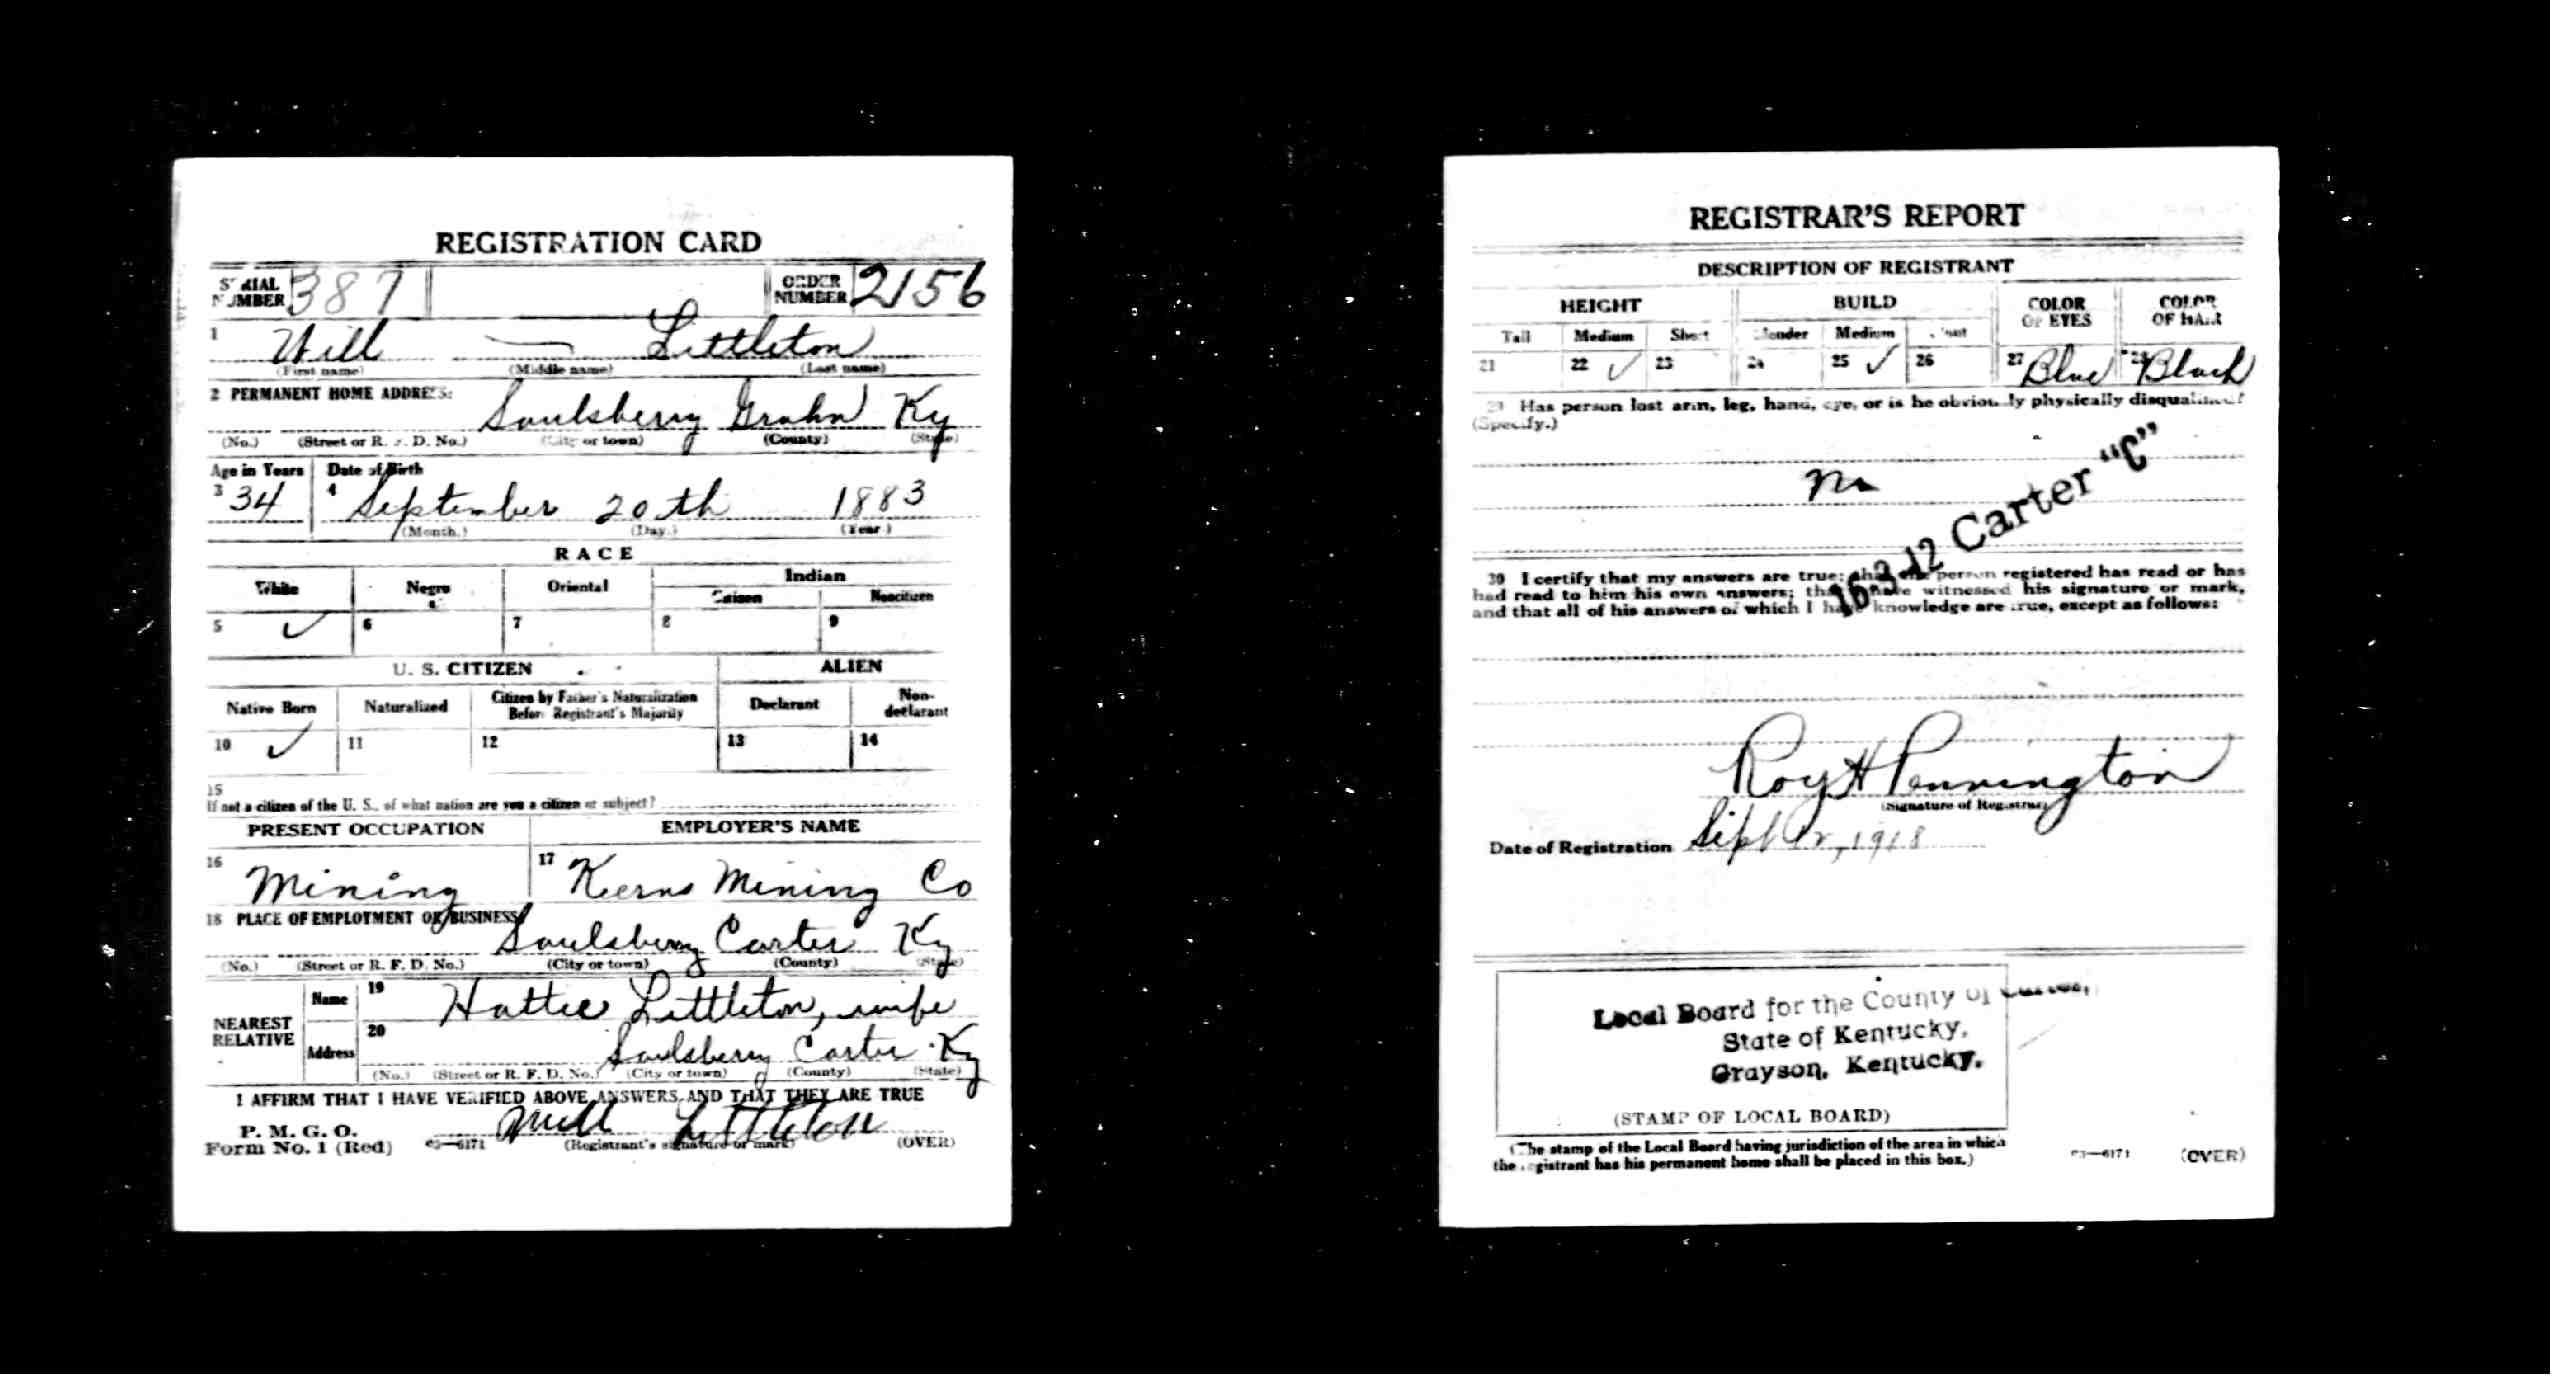 REGISTRATION CARD
SERIAL NUMBER 387 ORDER NUMBER 2156
1 Will — Littleton
(First name) (Middle name) (Last name)
2 PERMANENT HOME ADDRESS:
Saulsberry Grahn Ky
(No.) (Street or R. F. D. No.) (City or town) (County) (State)
Age in Years Date of Birth
3 34 4 September 20th 1883
(Month.) (Day.) (Year)
RACE
White Negro Oriental Indian
Citizen Noncitizen
5 ✓ 6 7 8 9
U. S. CITIZEN ALIEN
Native Born Naturalized Citizen by Father's Naturalization Before Registrant's Majority Declarant Non-declarant
10 ✓ 11 12 13 14
15
If not a citizen of the U. S., of what nation are you a citizen or subject?
PRESENT OCCUPATION EMPLOYER'S NAME
16 Mining 17 Kerns Mining Co
18 PLACE OF EMPLOYMENT OR BUSINESS
Saulsberry Carter Ky
(No.) (Street or R. F. D. No.) (City or town) (County) (State)
NEAREST RELATIVE
Name 19 Hattie Littleton, wife
Address 20 Saulsberry Carter Ky
(No.) (Street or R. F. D. No.) (City or town) (County) (State)
I AFFIRM THAT I HAVE VERIFIED ABOVE ANSWERS AND THAT THEY ARE TRUE
P. M. G. O.
Form No. 1 (Red) 03—6171 Will Littleton (OVER)
(Registrant's signature or mark)
REGISTRAR'S REPORT
DESCRIPTION OF REGISTRANT
HEIGHT BUILD COLOR OF EYES COLOR OF HAIR
Tall Medium Short Slender Medium Stout
21 22 ✓ 23 24 25 ✓ 26 27 Blue 28 Black
29 Has person lost arm, leg, hand, eye, or is he obviously physically disqualified?
(Specify.)
No
16-3-12 Carter "C"
30 I certify that my answers are true; that the person registered has read or has
had read to him his own answers; that I have witnessed his signature or mark,
and that all of his answers of which I have knowledge are true, except as follows:
Roy H Pennington
(Signature of Registrar)
Date of Registration Sept 12, 1918
Local Board for the County of Carter,
State of Kentucky,
Grayson, Kentucky,
(STAMP OF LOCAL BOARD)
(The stamp of the Local Board having jurisdiction of the area in which
the registrant has his permanent home shall be placed in this box.)
03—6171 (OVER)